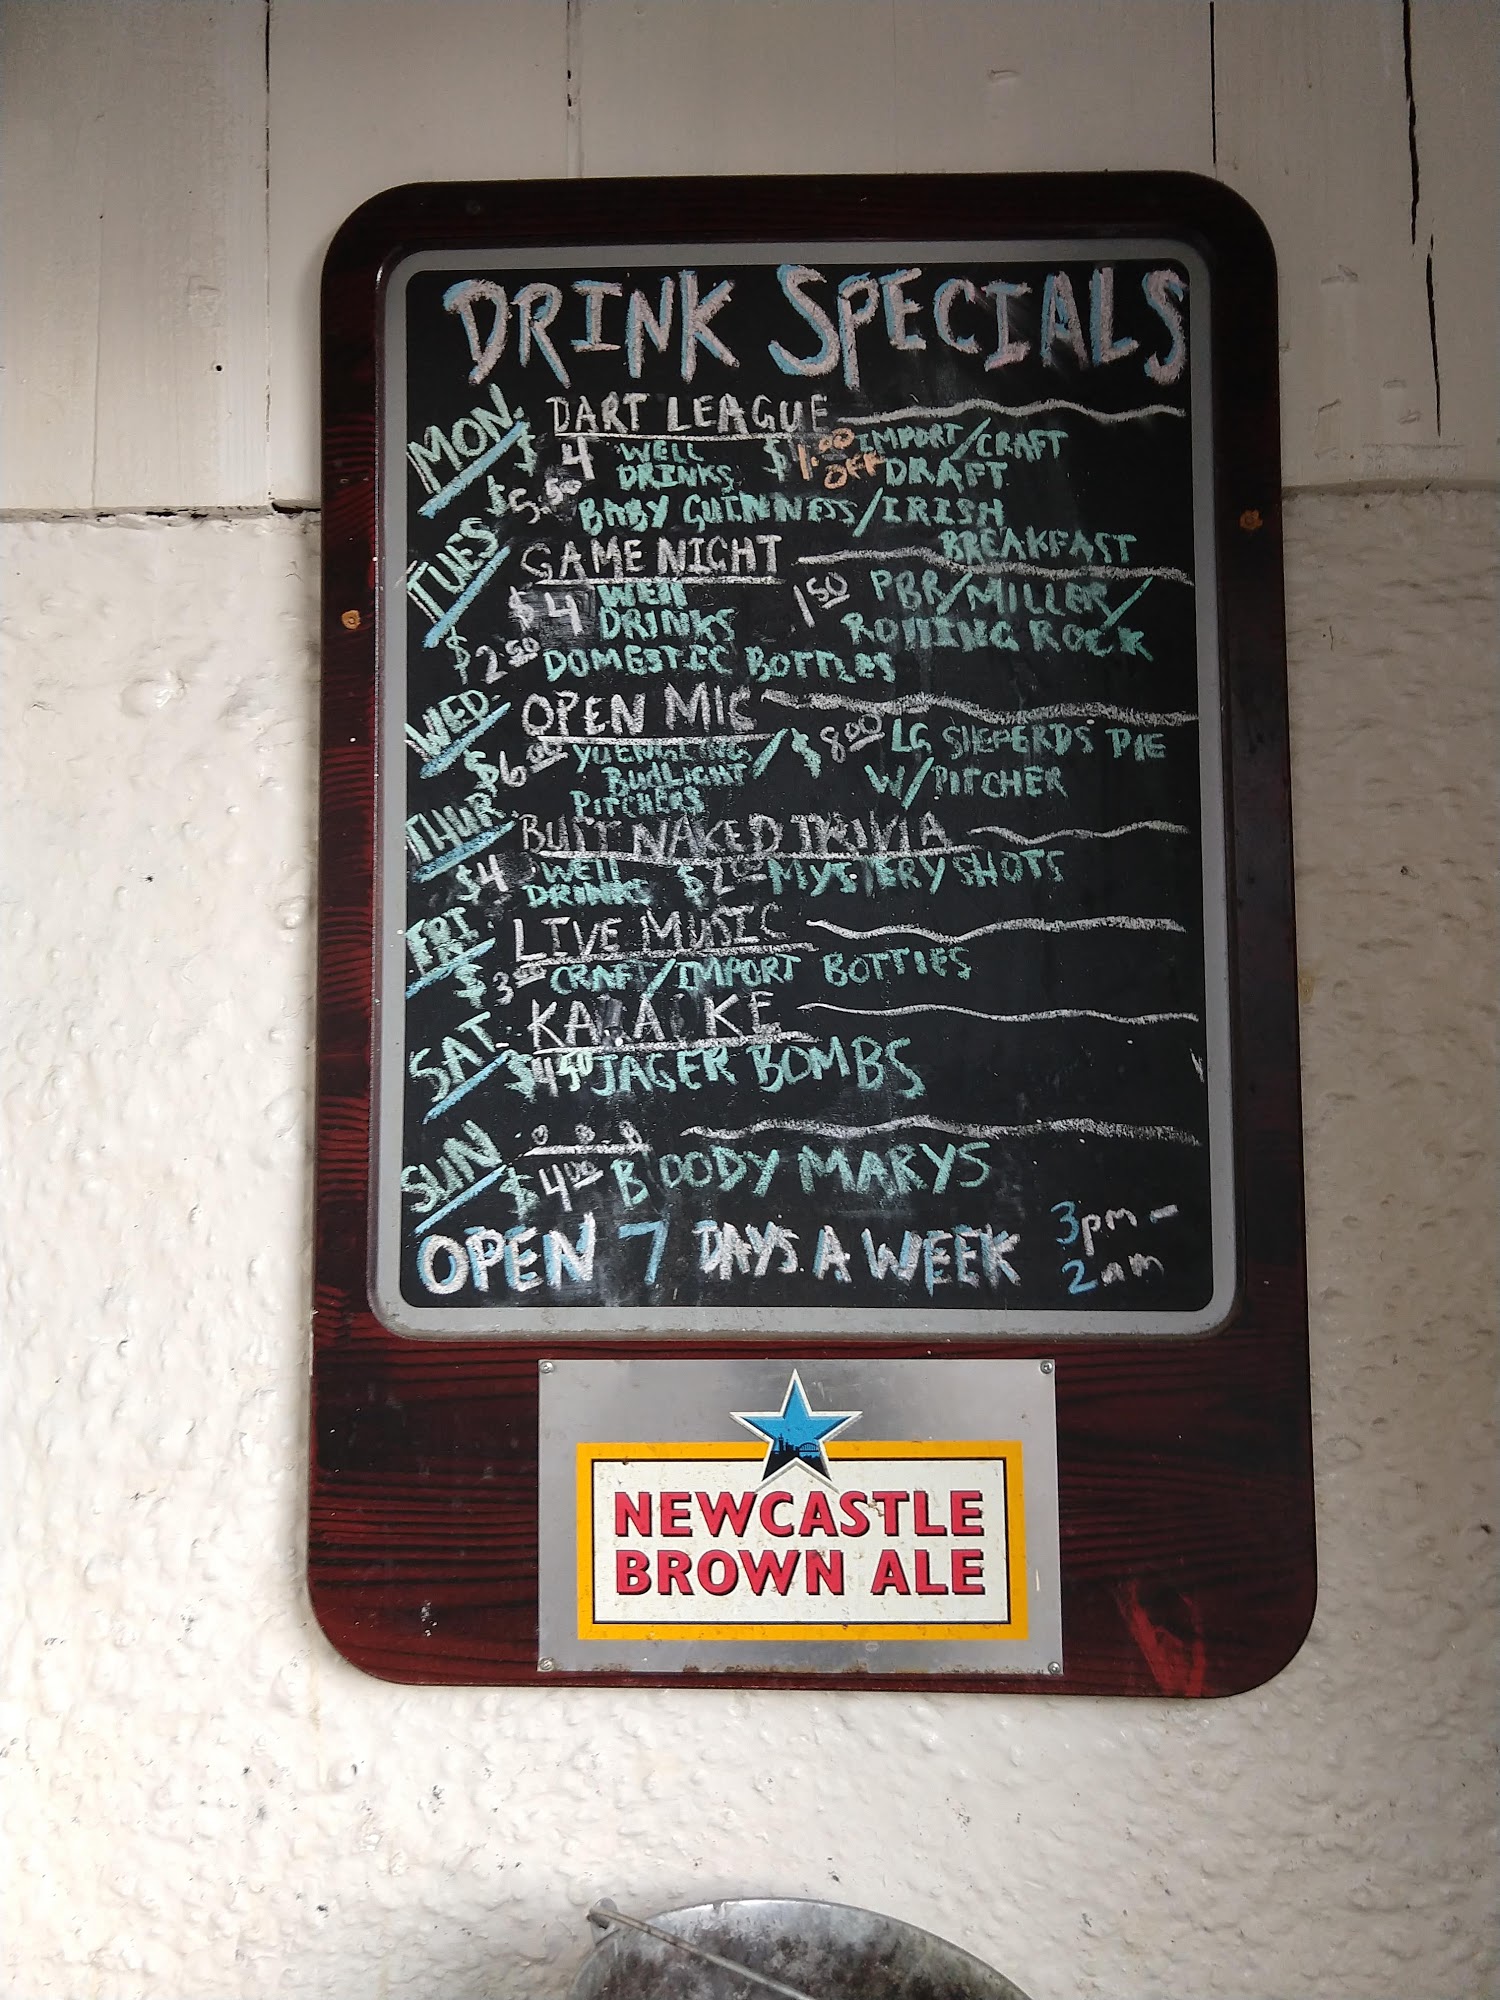 DRINK SPECIALS
MON. DART LEAGUE
$4 WELL DRINKS $1.00 OFF IMPORT/CRAFT DRAFT
$5.50 BABY GUINNESS/IRISH BREAKFAST
TUES GAME NIGHT
$4 WELL DRINKS 1.50 PBR/MILLER/ROLLING ROCK
$2.50 DOMESTIC BOTTLES
WED- OPEN MIC
$6.00 YUENGLING/BUDLIGHT PITCHERS $8.00 LG SHEPERDS PIE W/PITCHER
THUR BUTT NAKED TRIVIA
$4 WELL DRINKS $2.00 MYSTERY SHOTS
FRI LIVE MUSIC
$3.00 CRAFT/IMPORT BOTTLES
SAT. KA A KE
$4.50 JAGER BOMBS
SUN
$4.00 B OODY MARYS
OPEN 7 DAYS A WEEK 3pm - 2am
NEWCASTLE
BROWN ALE